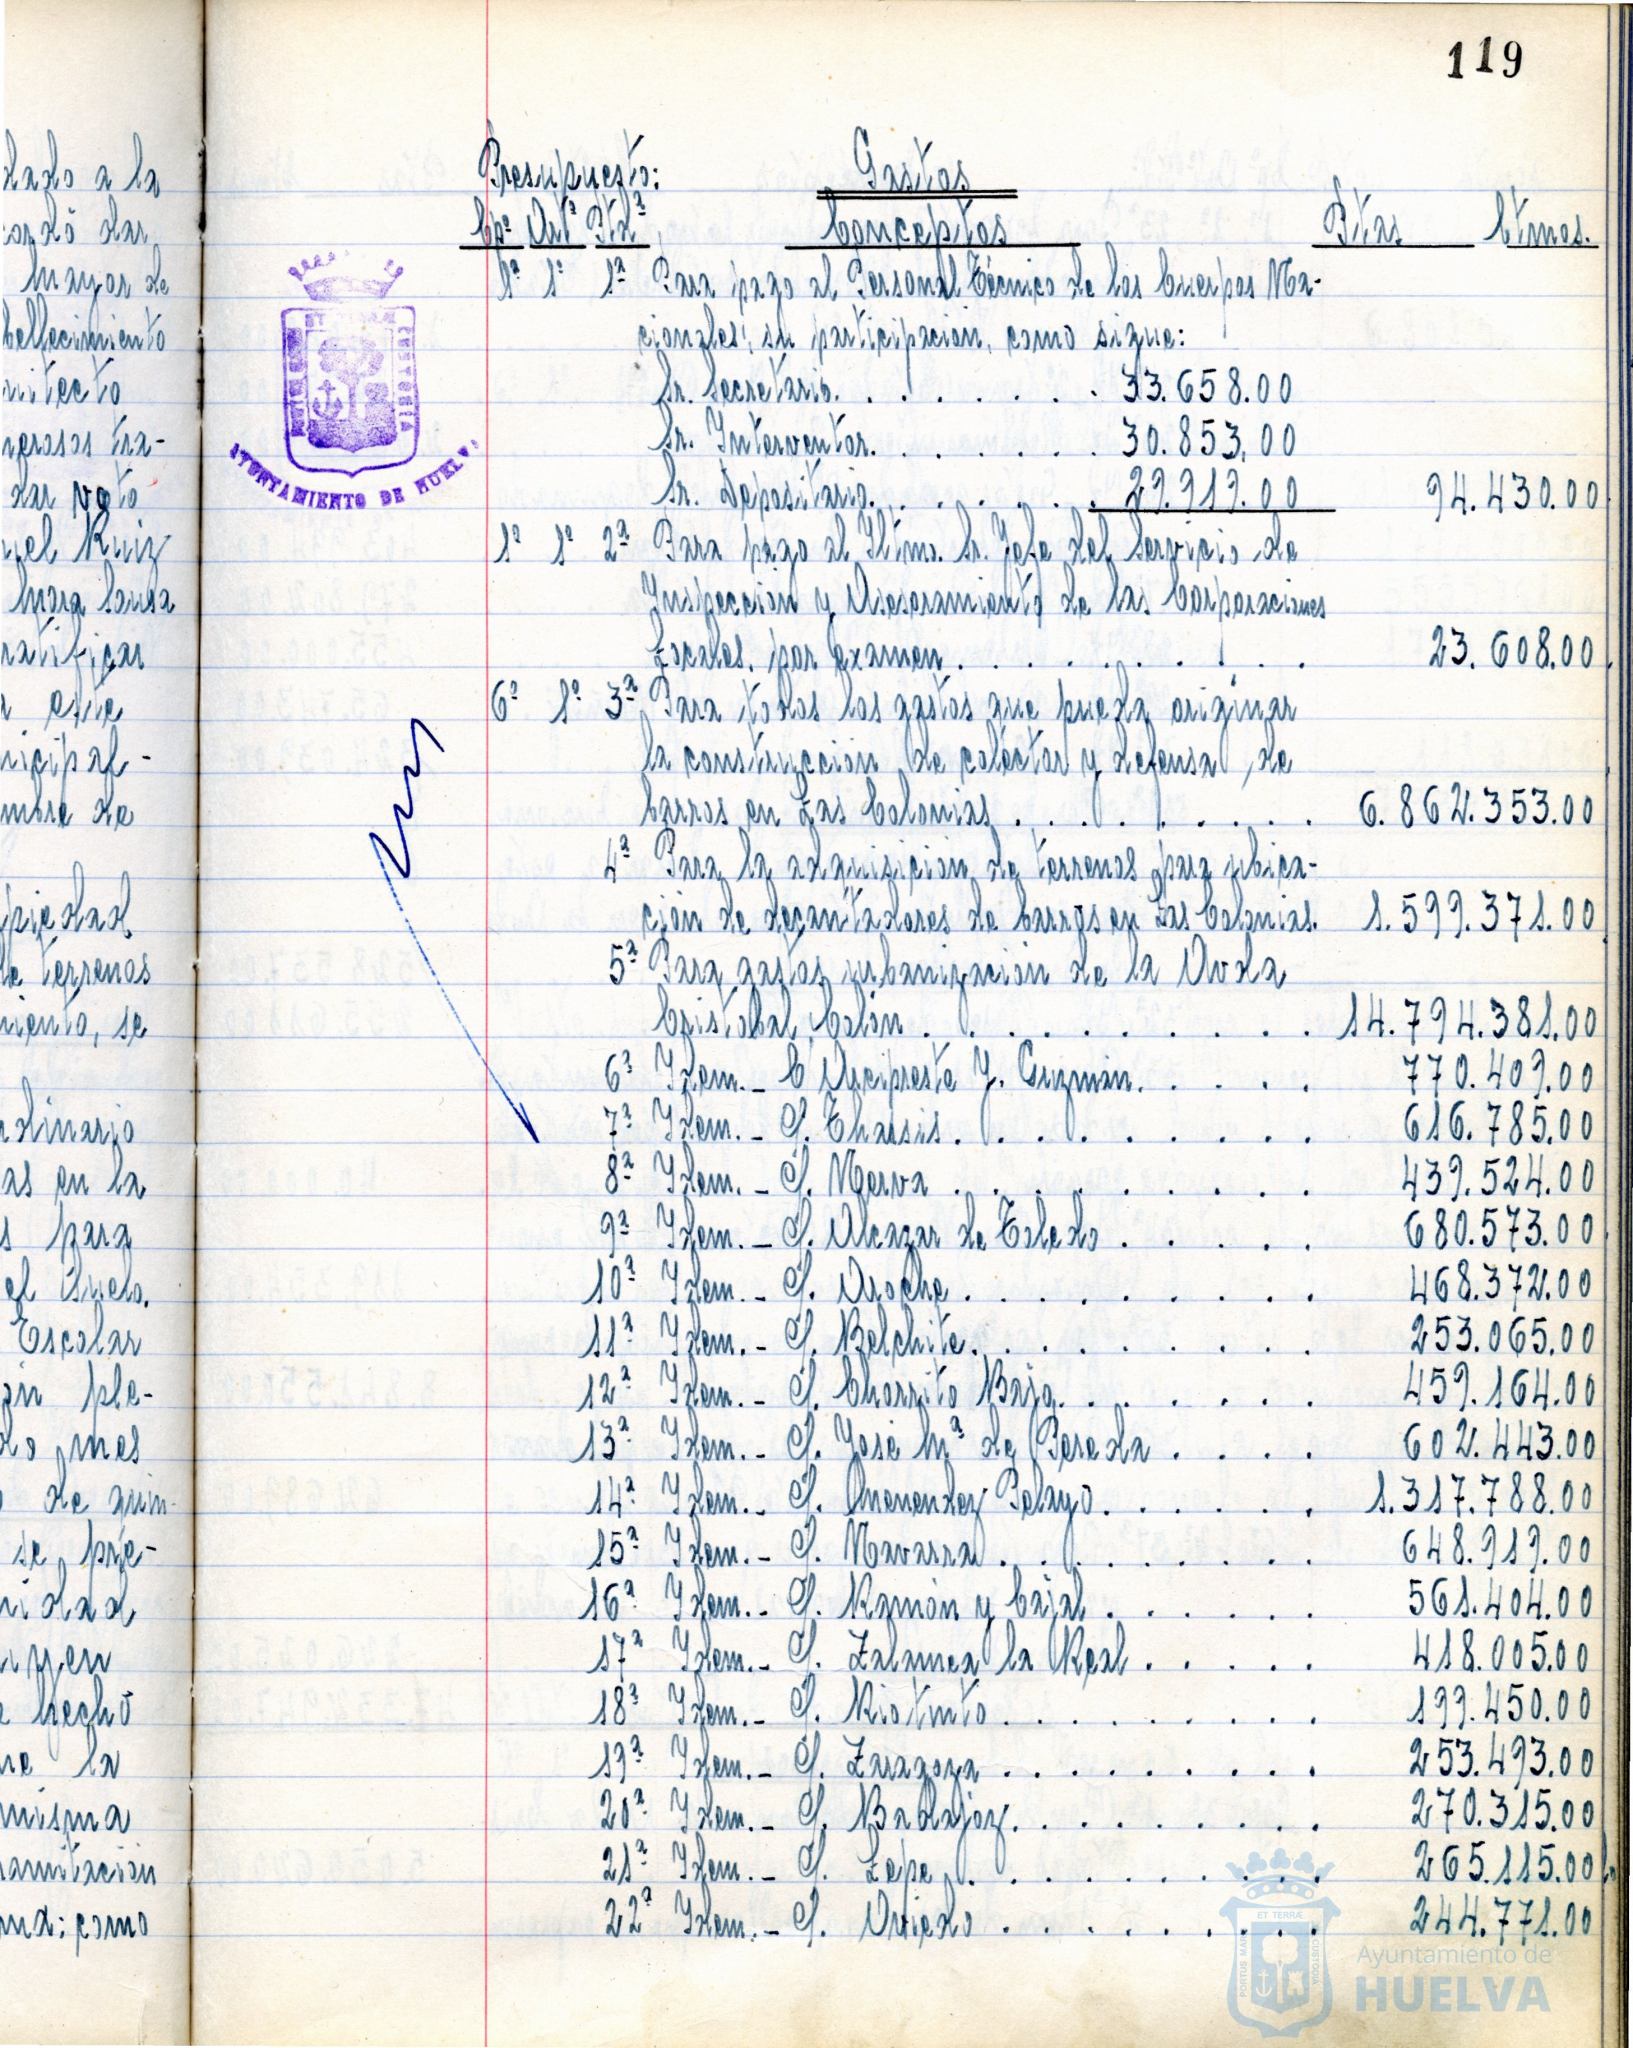 119
dado a la
cordó dar
Mayor de
bellecimiento
uitecto
nerosos tra-
dar voto
uel Ruiz
Mora Sousa
ratificar
a este
nicipal-
mbre de
piedad
de terrenos
miento, se
dinario
as en la
s para
el suelo.
Escolar
ón ple-
do mes
de quin-
se pre-
nidad
uyen
hecho
ue la
misma
ramitación
como
AYUNTAMIENTO DE HUELVA
Presupuesto: Gastos
Cpº Artº Ptdª Conceptos Ptas Ctmos.
1º 1º 1ª Para pago al Personal Técnico de los Cuerpos Na-
cionales, su participación, como sigue:
Sr. Secretario. . . . . . . . 33.658.00
Sr. Interventor. . . . . . . 30.853,00
Sr. Depositario. . . . . . . 29.919.00 94.430.00
1º 1º 2ª Para pago al Iltmo. Sr. Jefe del Servicio de
Inspección y Asesoramiento de las Corporaciones
Locales, por examen. . . . . . . . . 23.608.00
6º 1º 3ª Para todos los gastos que pueda originar
la construcción de colector y defensa de
barros en Las Colonias . . . . . . . . 6.862.353.00
4ª Para la adquisición de terrenos para ubica-
ción de decantadores de barros en Las Colonias. 1.599.371.00
5ª Para gastos urbanización de la Avda
Cristobal Colón . . . . . . . . . 14.794.381.00
6ª Idem.- C Arcipreste J. Guzmán. . . . . 770.409.00
7ª Idem.- C/. Tharsis. . . . . . . . . 616.785.00
8ª Idem.- C/. Nerva . . . . . . . . . 439.524.00
9ª Idem.- C/. Alcazar de Toledo . . . . . 680.573.00
10ª Idem.- C/. Aroche . . . . . . . . . 468.372.00
11ª Idem.- C/. Belchite. . . . . . . . . 253.065.00
12ª Idem.- C/. Chorrito Bajo. . . . . . . 459.164.00
13ª Idem.- C/. José Mª de Pereda . . . . 602.443.00
14ª Idem.- C/. Menendez Pelayo. . . . . . 1.317.788.00
15ª Idem.- C/. Navarra . . . . . . . . . 648.919.00
16ª Idem.- C/. Ramón y Cajal . . . . . . 561.404.00
17ª Idem.- C/. Zalamea la Real . . . . . 418.005.00
18ª Idem.- C/. Riotinto . . . . . . . . . 199.450.00
19ª Idem.- C/. Zaragoza . . . . . . . . . 253.493.00
20ª Idem.- C/. Badajoz. . . . . . . . . 270.315.00
21ª Idem.- C/. Lepe . . . . . . . . . . 265.115.00
22ª Idem.- C/. Oviedo . . . . . . . . . 244.771.00
ET TERRÆ
PORTUS MARIS
CUSTODIA
Ayuntamiento de
HUELVA